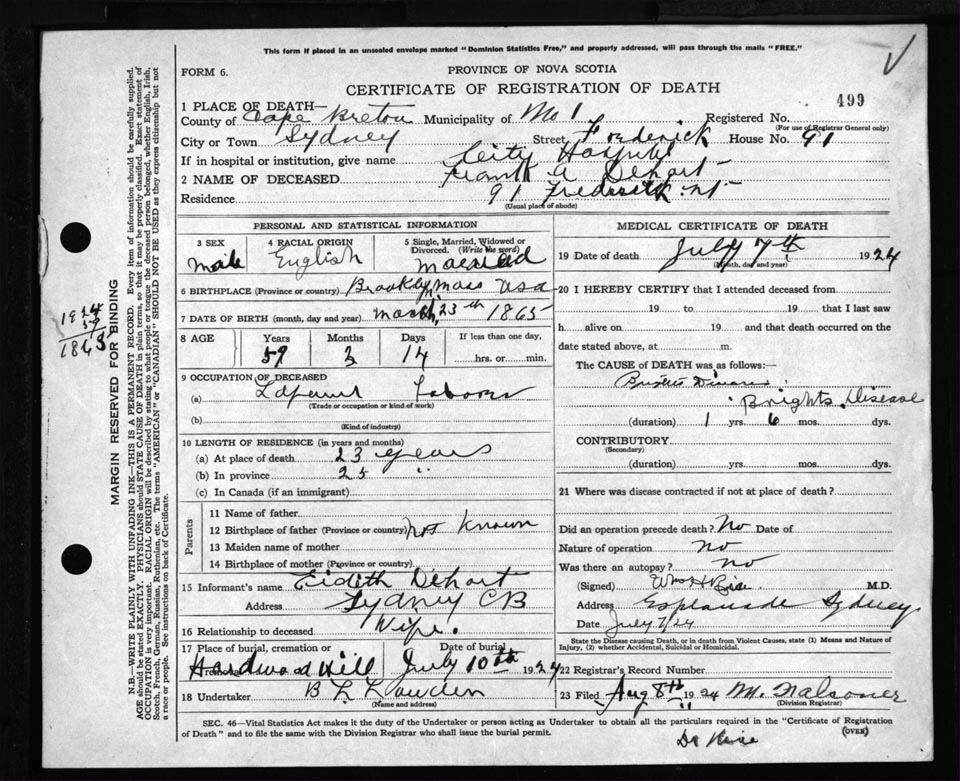 This form if placed in an unsealed envelope marked "Dominion Statistics Free," and properly addressed, will pass through the mails "FREE."
FORM 6.
PROVINCE OF NOVA SCOTIA
CERTIFICATE OF REGISTRATION OF DEATH
499
1 PLACE OF DEATH—
County of Cape Breton Municipality of No 1 Registered No.
(For use of Registrar General only)
City or Town Sydney Street Frederick House No. 91
If in hospital or institution, give name City Hospital
2 NAME OF DECEASED Frank A Dehart
Residence 91 Frederick St
(Usual place of abode)
PERSONAL AND STATISTICAL INFORMATION
3 SEX
male
4 RACIAL ORIGIN
English
5 Single, Married, Widowed or Divorced. (Write the word)
married
6 BIRTHPLACE (Province or country) Mass USA
7 DATE OF BIRTH (month, day and year) March 23th 1865
8 AGE Years Months Days If less than one day,
59 3 14 hrs. or min.
9 OCCUPATION OF DECEASED
(a) Labourer
(Trade or occupation or kind of work)
(b)
(Kind of industry)
10 LENGTH OF RESIDENCE (in years and months)
(a) At place of death 23 years
(b) In province 25 "
(c) In Canada (if an immigrant)
Parents
11 Name of father
12 Birthplace of father (Province or country) Not Known
13 Maiden name of mother
14 Birthplace of mother (Province or country)
15 Informant's name Eidith Dehart
Address Sydney CB
16 Relationship to deceased Wife.
17 Place of burial, cremation or removal Date of burial
Hardwood Hill July 10th 1924
18 Undertaker B L
(Name and address)
MEDICAL CERTIFICATE OF DEATH
19 Date of death July 7th 1924
(Month, day and year)
20 I HEREBY CERTIFY that I attended deceased from
19 to 19 that I last saw
h alive on 19 and that death occurred on the
date stated above, at m.
The CAUSE OF DEATH was as follows:
Brights Disease
(duration) 1 yrs. 6 mos. dys.
CONTRIBUTORY
(Secondary)
(duration) yrs. mos. dys.
21 Where was disease contracted if not at place of death?
Did an operation precede death? No Date of
Nature of operation No
Was there an autopsy? no
(Signed) Wm H Rice M.D.
Address Esplanade Sydney
Date July 7/24
State the Disease causing Death, or in death from Violent Causes, state (1) Means and Nature of Injury, (2) whether Accidental, Suicidal or Homicidal.
22 Registrar's Record Number
23 Filed Aug 8th 1924 M.
(Division Registrar)
SEC. 46—Vital Statistics Act makes it the duty of the Undertaker or person acting as Undertaker to obtain all the particulars required in the "Certificate of Registration of Death" and to file the same with the Division Registrar who shall issue the burial permit.
(OVER)
Dr Rice
MARGIN RESERVED FOR BINDING
1924
59
1865
N.B.—WRITE PLAINLY WITH UNFADING INK—THIS IS A PERMANENT RECORD. Every item of information should be carefully supplied.
AGE should be stated EXACTLY. PHYSICIANS should STATE CAUSE OF DEATH in plain terms, so that it may be properly classified. Exact statement of
OCCUPATION is very important. RACIAL ORIGIN will be described by stating to what people or tongue the deceased person belonged, whether English, Irish,
Scotch, French, German, Russian, Ruthenian, etc. The terms "AMERICAN" or "CANADIAN" SHOULD NOT BE USED as they express citizenship but not
a race or people. See instructions on back of Certificate.